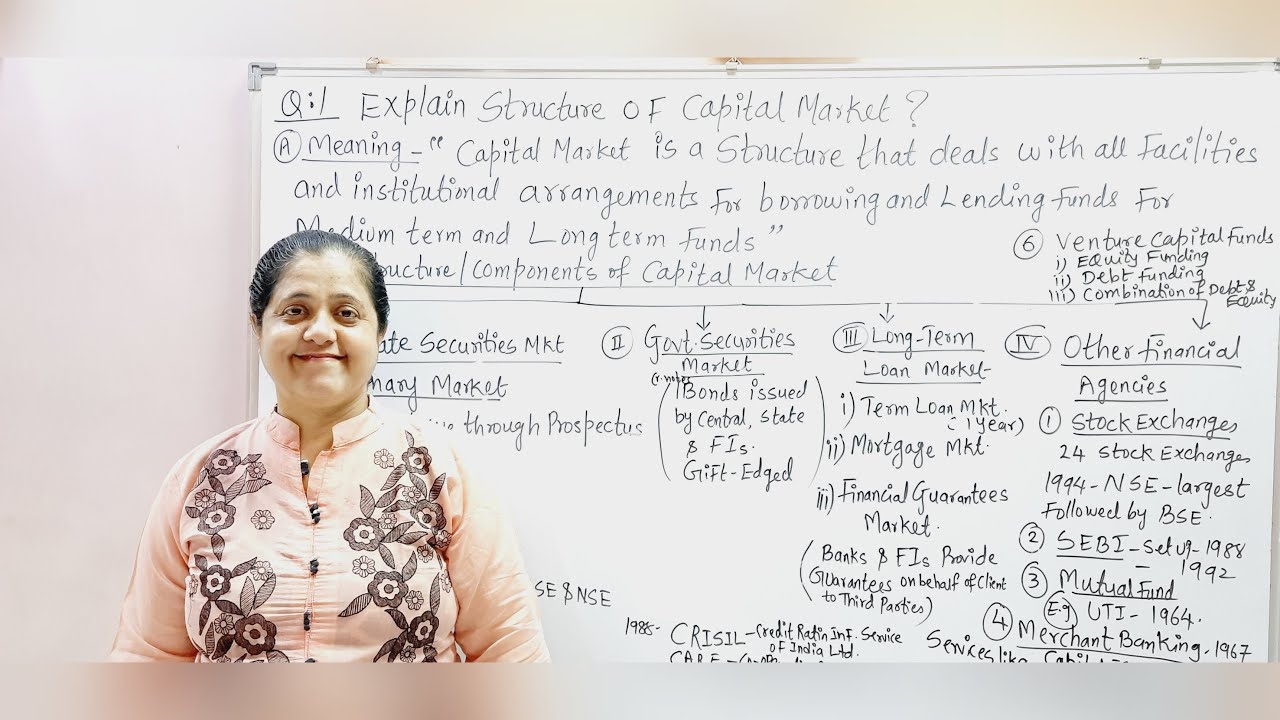 Q:1 Explain Structure OF Capital Market ?
(A) Meaning - " Capital Market is a Structure that deals with all Facilities
and institutional arrangements For borrowing and Lending funds For
Medium term and Long term Funds "
Structure/Components of Capital Market
ate Securities Mkt
mary Market
through Prospectus
SE & NSE
(II) Govt. Securities
Market
Bonds issued
by Central, State
& FIs.
Gift-Edged
1988- CRISIL - Credit Ratin Inf. Service
OF India Ltd.
CARE -
(III) Long-Term
Loan Market
i) Term Loan Mkt.
1 Year)
ii) Mortgage Mkt.
iii) Financial Guarantees
Market.
(Banks & FIs Provide
Guarantees on behalf of Client
to Third Parties)
(6) Venture Capital Funds
i) Equity Funding
ii) Debt funding
iii) Combination of Debt &
Equity
(IV) Other Financial
Agencies
(1) Stock Exchanges
24 Stock Exchanges
1994 - NSE - largest
Followed by BSE.
(2) SEBI - Set up - 1988
- 1992
(3) Mutual Fund
(E.g) UTI - 1964.
(4) Merchant Banking. 1967
Services like